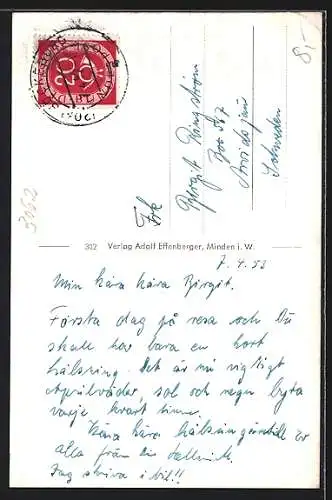 8,-
20
Frk
Birgit Ringström
Box 567
Arvidsjaur
Schweden
3062
302 Verlag Adolf Effenberger, Minden i. W.
7.4.53
Min kära kära Birgit.
Första dag på resa och Du
skall ha bara en kort
hälsning. Det är nu riktigt
Aprilväder, sol och regn byta
varje kvart timme.
Kära kära hälsningar till Er
alla från
Jag skriva i bil!!